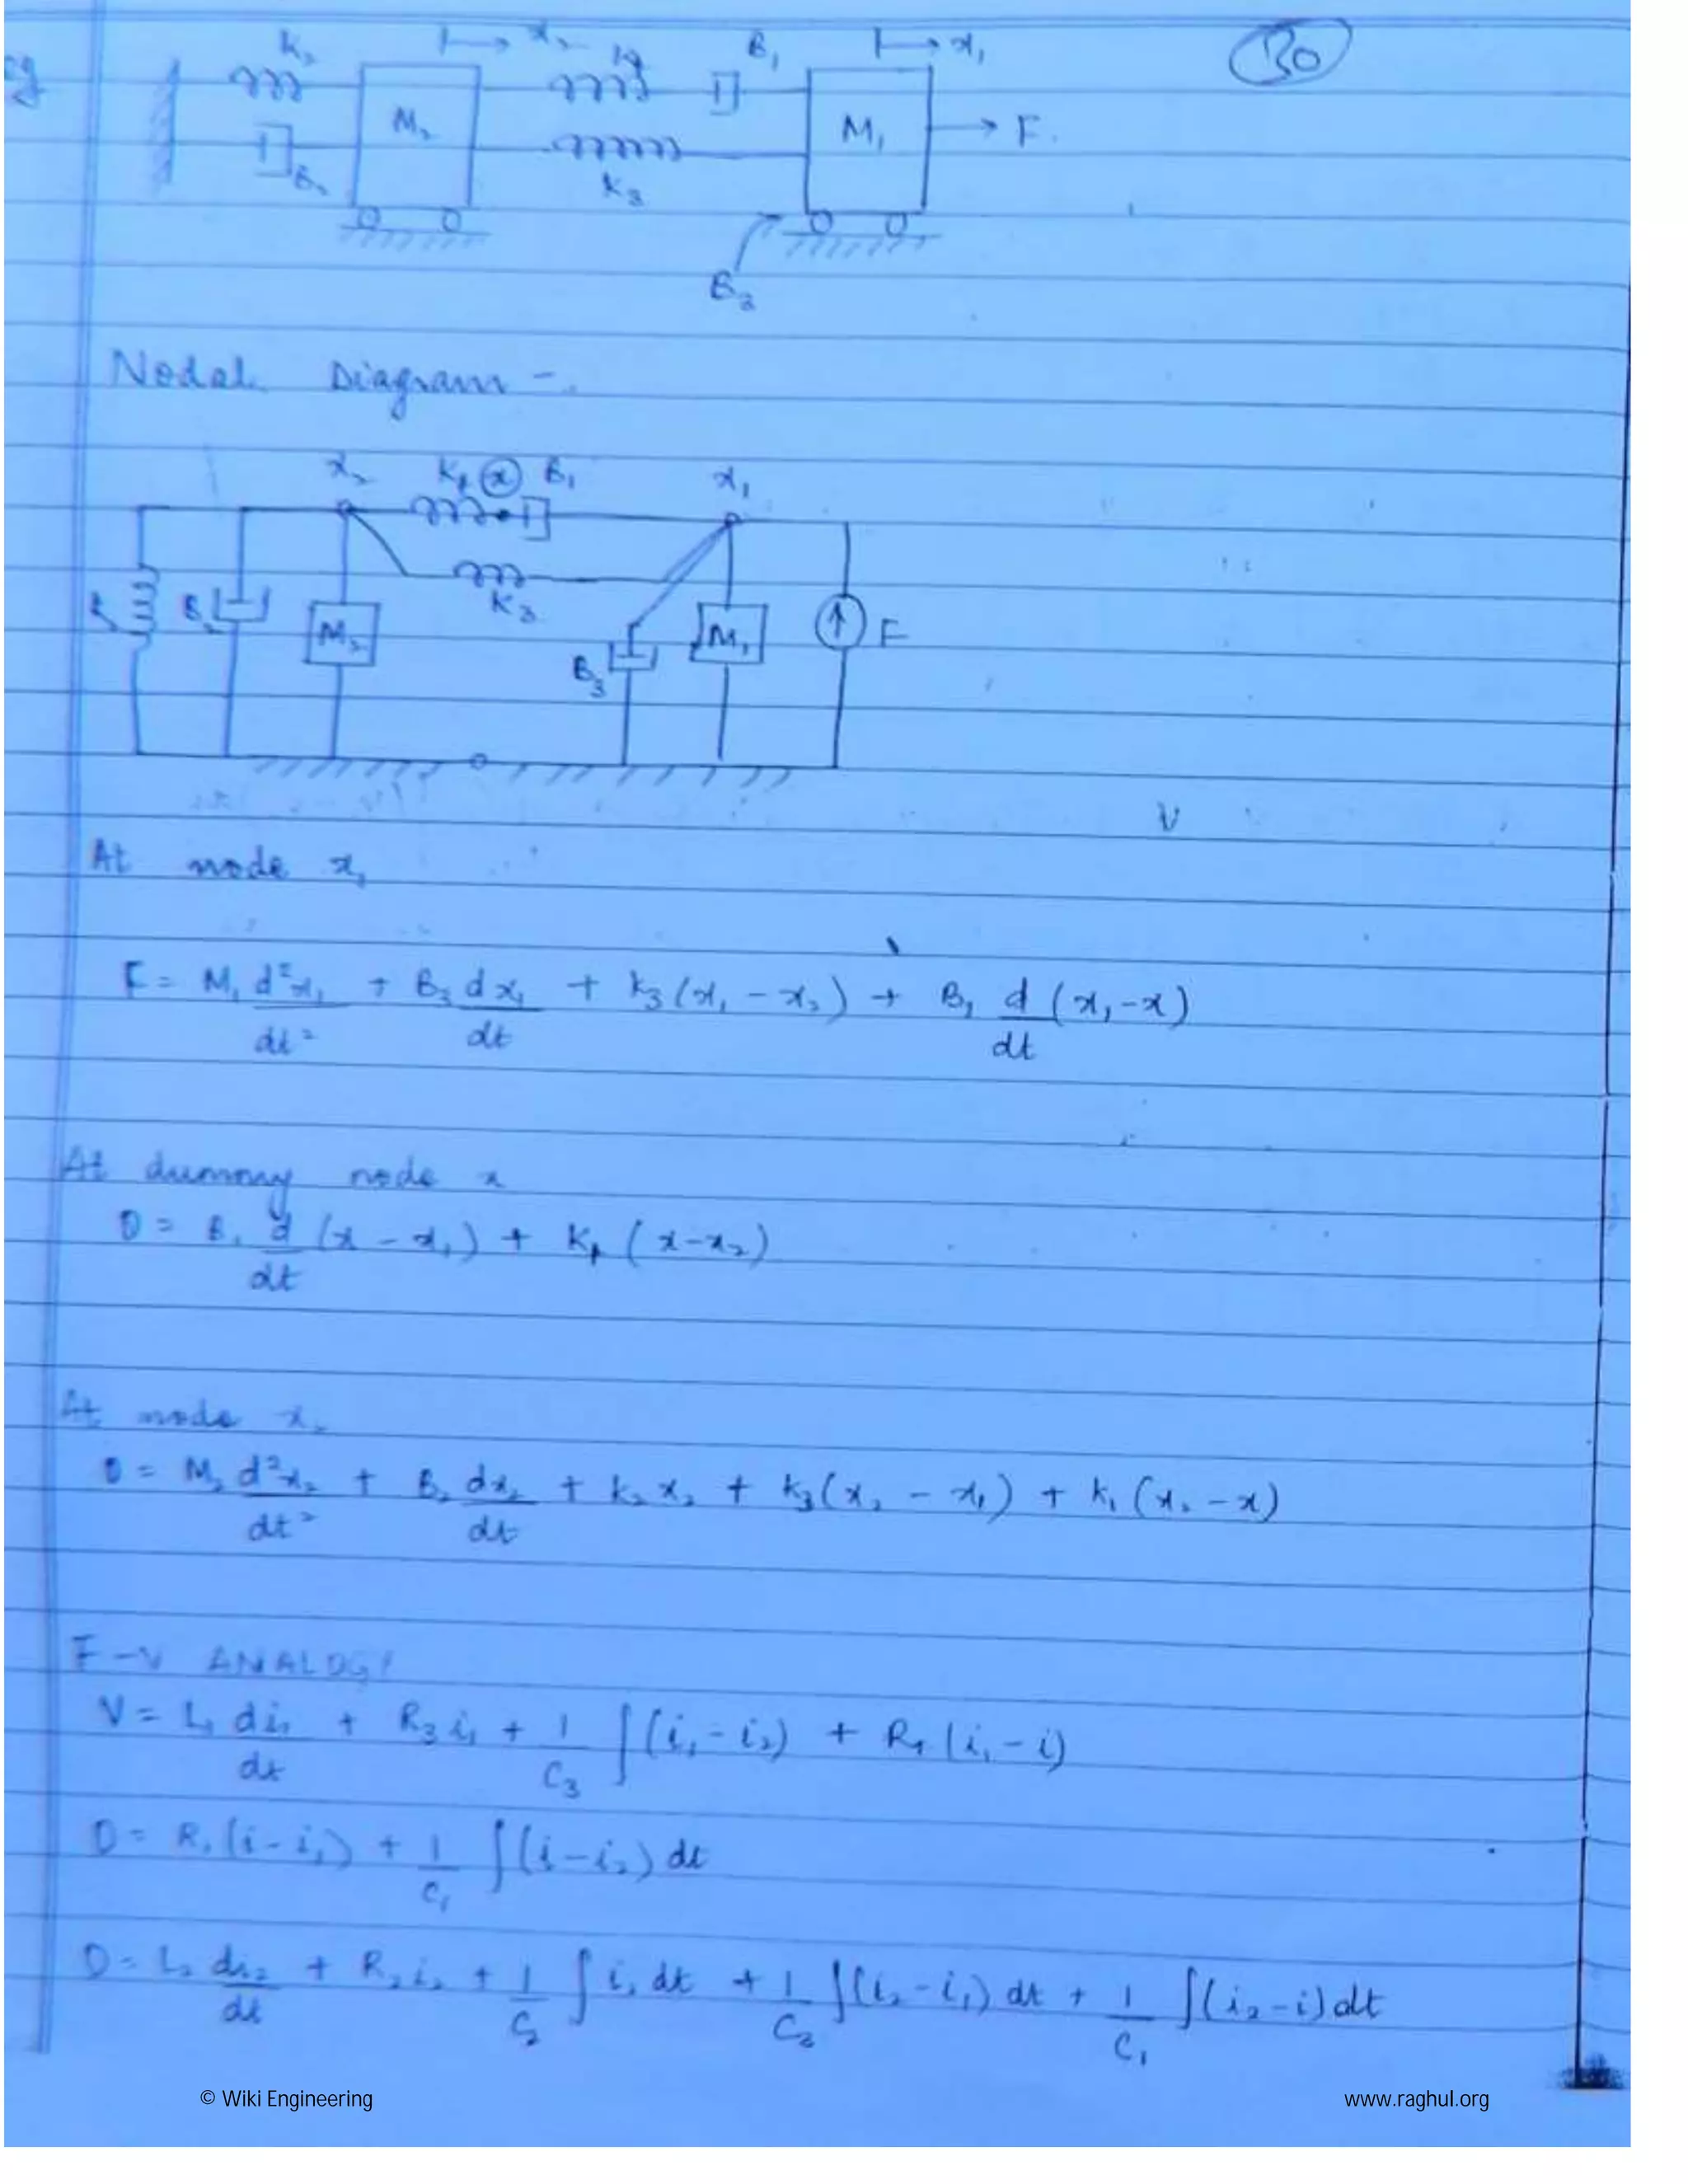 eg
K₂ x₂ K₁ B₁ x₁ 30
M₂ M₁ F.
B₂ K₃
B₃
Nodal Diagram -
x₂ K₁ x B₁ x₁
K₃
B₂ M₂ B₃ M₁ F
At node x₁
F = M₁ d²x₁/dt² + B₃ dx₁/dt + K₃(x₁ - x₂) + B₁ d/dt (x₁ - x)
At dummy node x
0 = B₁ d/dt (x - x₁) + K₁ (x - x₂)
At node x₂
0 = M₂ d²x₂/dt² + B₂ dx₂/dt + K₂ x₂ + K₃(x₂ - x₁) + K₁ (x₂ - x)
F-V ANALOGY
V = L₁ di₁/dt + R₃ i₁ + 1/C₃ ∫(i₁ - i₂) + R₁ (i₁ - i)
0 = R₁(i - i₁) + 1/C₁ ∫(i - i₂) dt
0 = L₂ di₂/dt + R₂ i₂ + 1/C₂ ∫ i₂ dt + 1/C₃ ∫(i₂ - i₁) dt + 1/C₁ ∫(i₂ - i) dt
© Wiki Engineering www.raghul.org